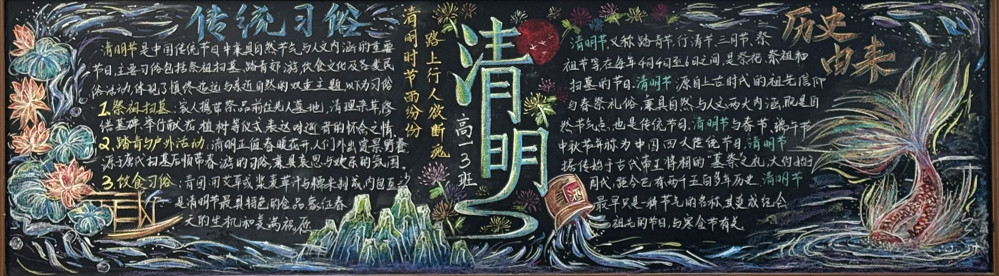 传统习俗
清明节是中国传统节日中兼具自然节气与人文内涵的重要
节日,主要习俗包括祭祖扫墓、踏青郊游、饮食文化及各类民
俗活动,体现了慎终追远与亲近自然的双重主题,以下为习俗
1.祭祖扫墓:家人携甘祭品前往先人墓地,清理杂草修
缮墓碑,举行献花、植树等仪式,表达对逝者的怀念之情。
2.踏青与户外活动:清明正值春暖花开,人们外出赏景野餐
源于唐代扫墓后顺带春游的习俗兼具哀思与欢乐的氛围。
3.饮食习俗:青团:用艾草或浆麦草汁与糯米制成,内包豆沙
是清明节最具特色的食品,象征春
天的生机和美满祝愿
清明时节雨纷纷
路上行人欲断魂
清明
高一13班
酒
历史由来
清明节,又称踏青节、行清节、三月节、祭
祖节等,在每年4月4日至6日之间,是祭祀、祭祖和
扫墓的节日。清明节源自上古时代的祖先信仰
与春祭礼俗,兼具自然与人文两大内涵,既是自
然节气点,也是传统节日,清明节与春节、端午节
中秋节并称为中国四大传统节日。清明节
据传始于古代帝王将相的“墓祭”之礼,大约始于
周代,距今已有两千五百多年历史。清明节
最早只是一种节气的名称,其变成纪念
祖先的节日,与寒食节有关